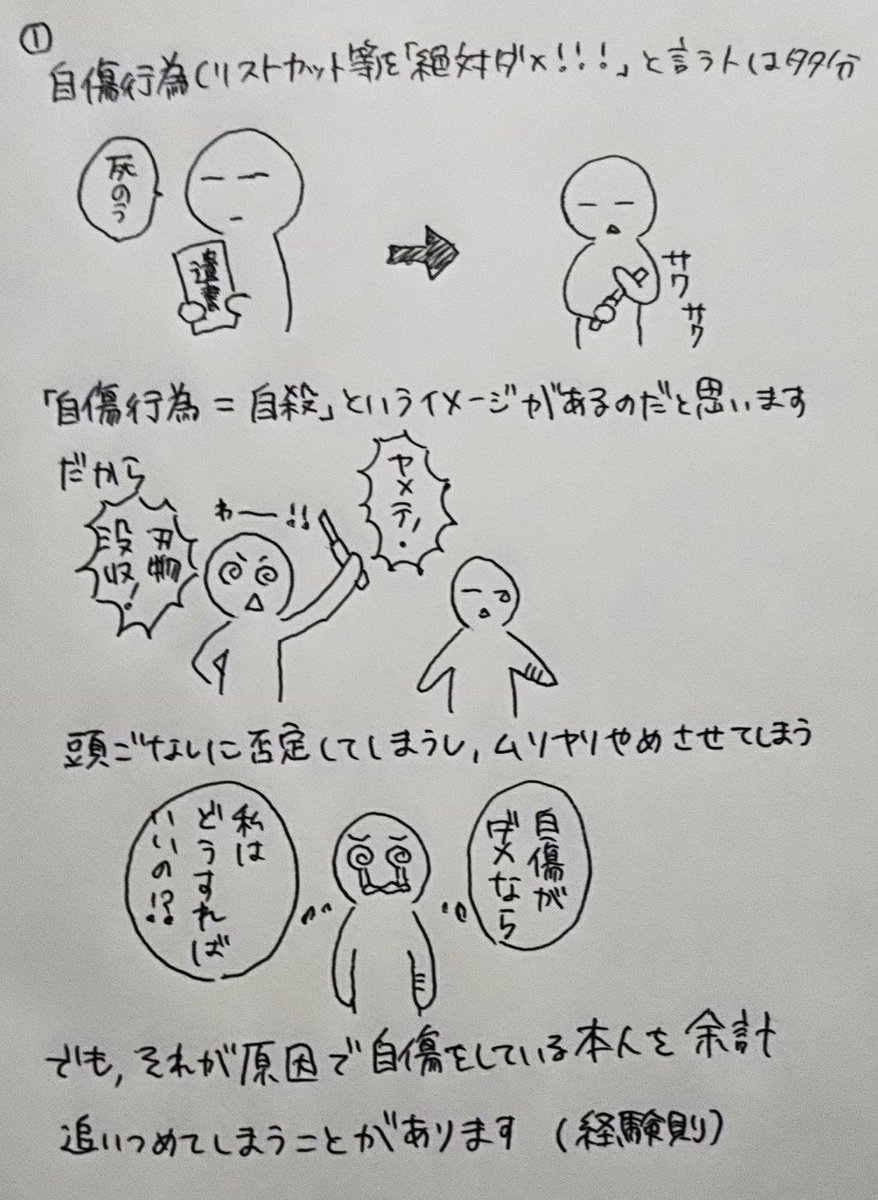 ①
自傷行為(リストカット等)を「絶対ダメ!!!」と言う人は多分
死のう
遺書
サワ
サワ
「自傷行為=自殺」というイメージがあるのだと思います
だから
刃物
没収!
わー!!
ヤメテ!
頭ごなしに否定してしまうし,ムリヤリやめさせてしまう
自傷が
ダメなら
私は
どうすれば
いいの!?
でも,それが原因で自傷をしている本人を余計
追いつめてしまうことがあります(経験則)